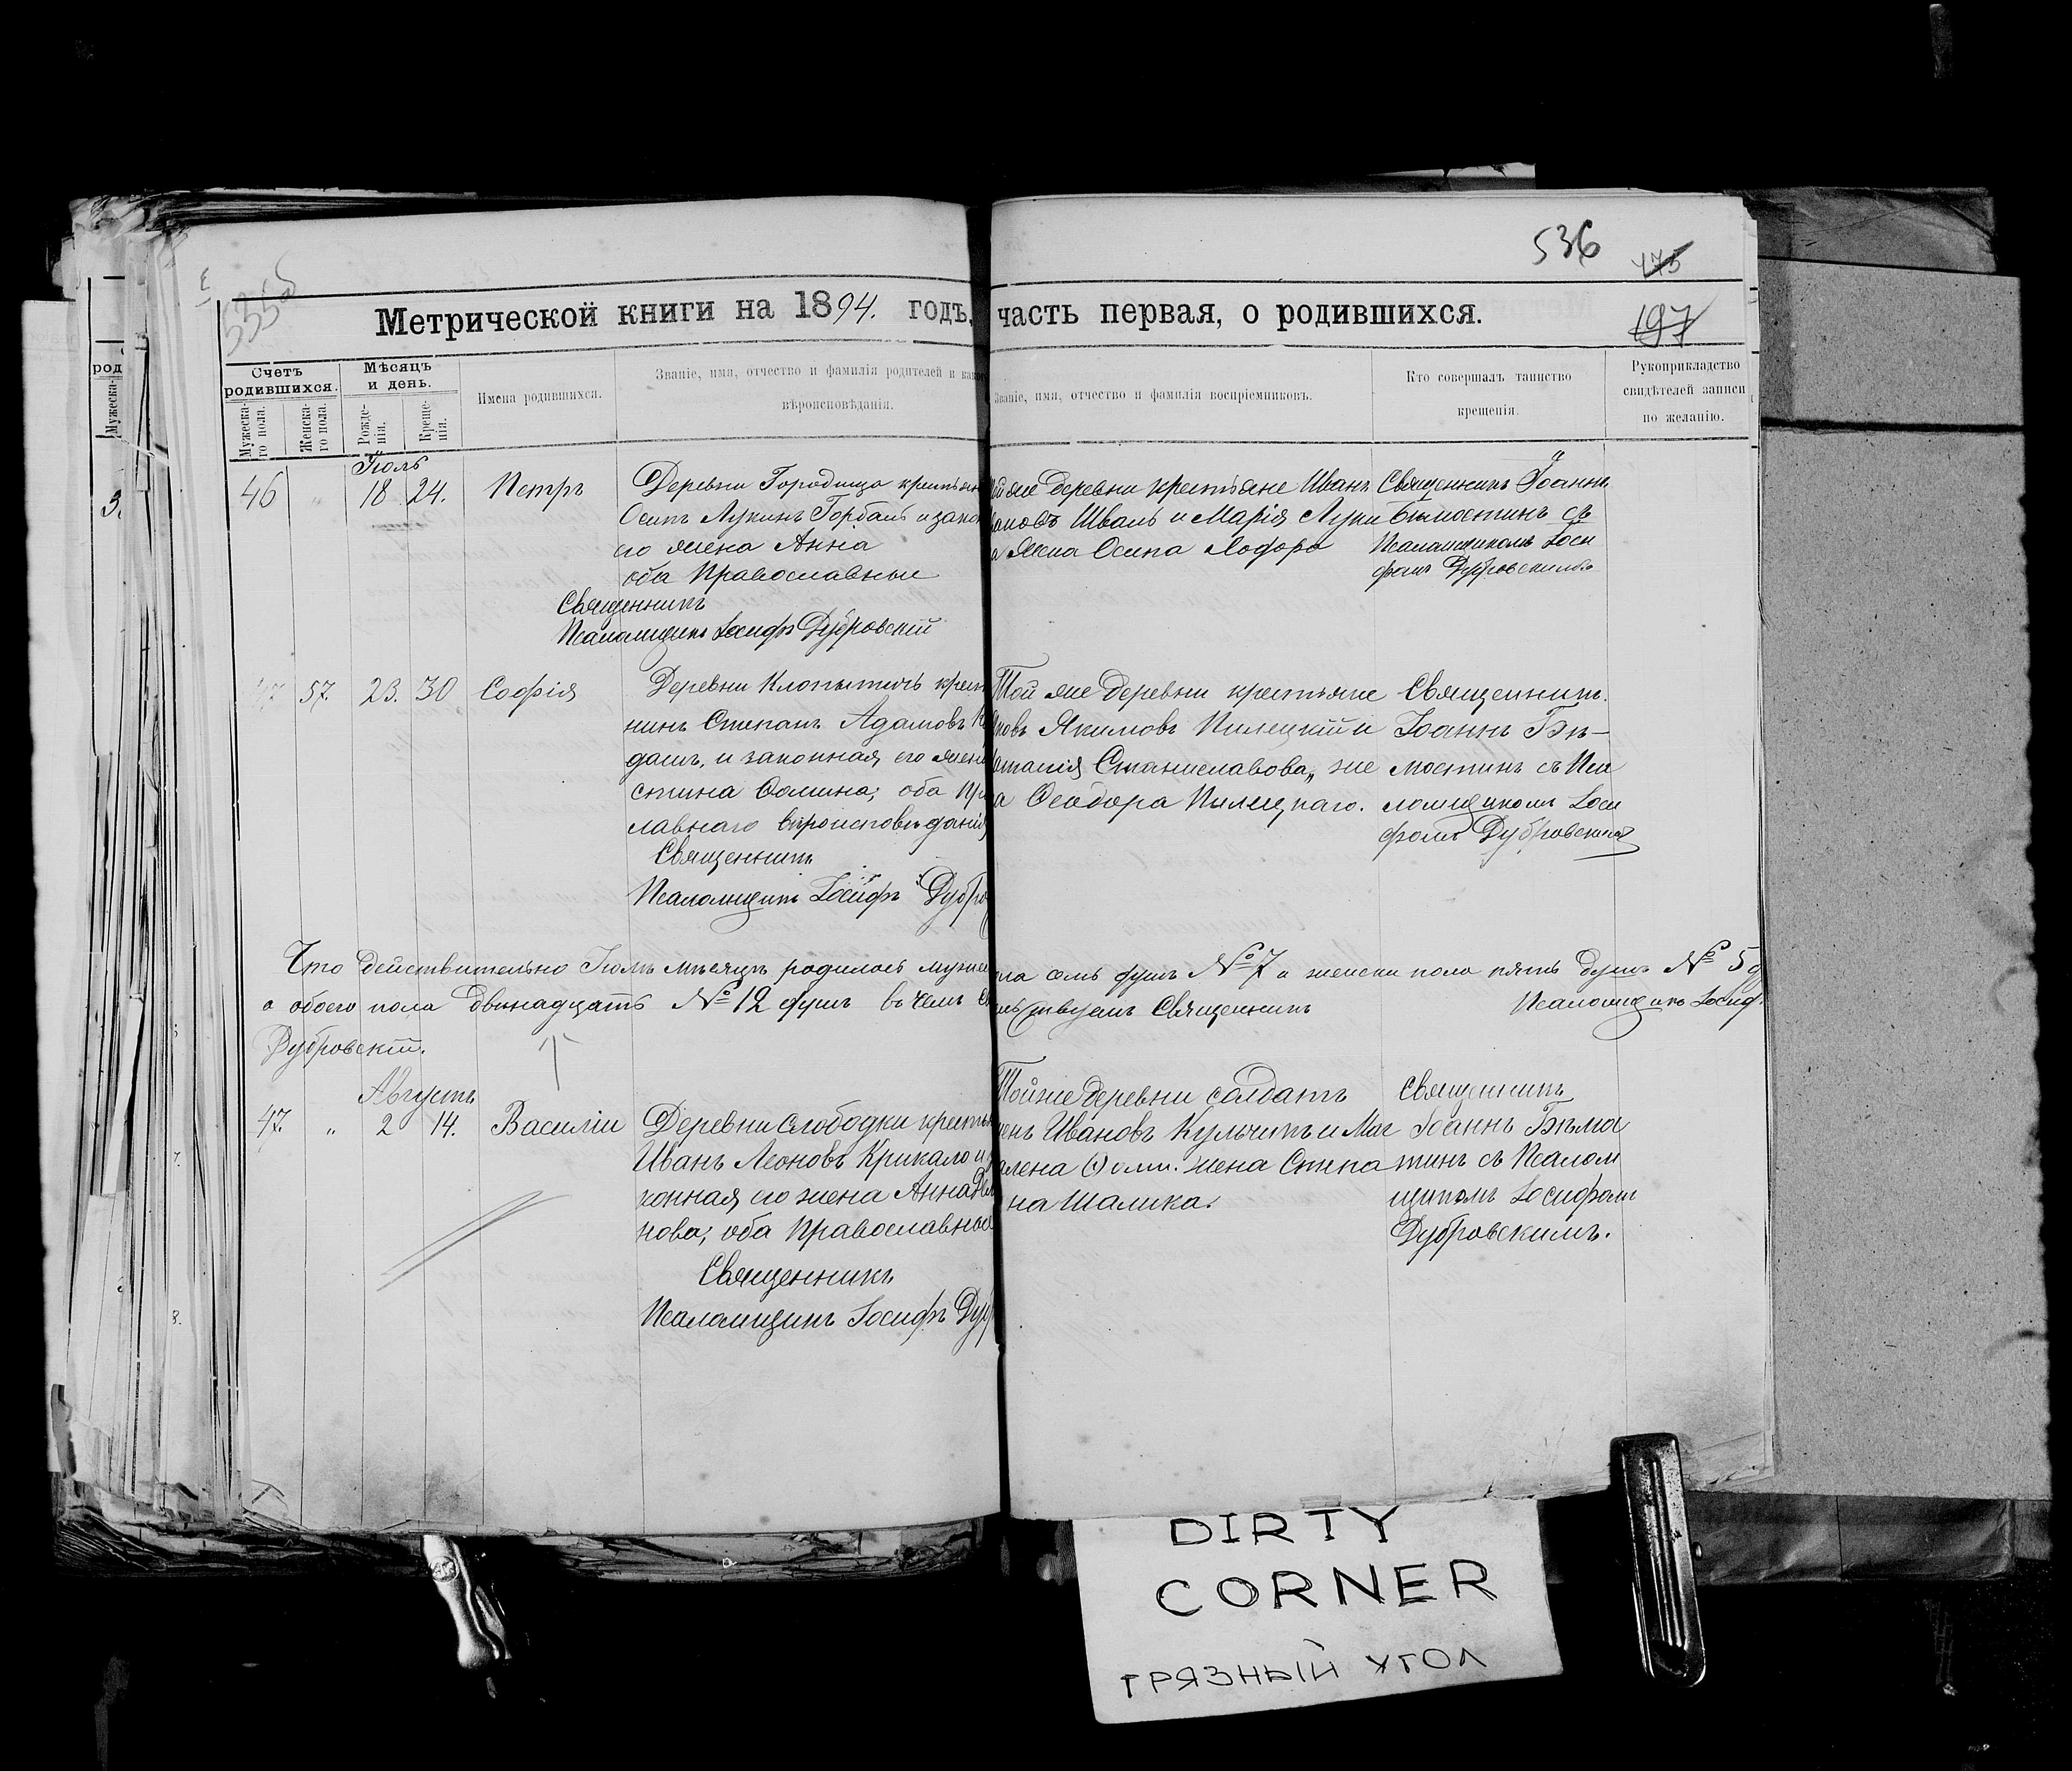 536
475
535об
197
Метрической книги на 1894. годъ, часть первая, о родившихся.
Счетъ родившихся.
Мѣсяцъ и день.
Имена родившихся.
Званіе, имя, отчество и фамилія родителей и како
вѣроисповѣданія.
Званіе, имя, отчество и фамилія воспріемниковъ.
Кто совершалъ таинство
крещенія.
Рукоприкладство
свидѣтелей записи
по желанію.
Мужеска-
го пола.
Женска-
го пола.
Рожде-
нія.
Креще-
нія.
род
Мужеска-
3.
Іюль
46 " 18 24. Петръ
Деревни Городища крестьян
Осипъ Лукинъ Горбаль и закон
его жена Анна
оба Православные
Священникъ
Псаломщикъ Іосифъ Дубровскій
же деревни крестьяне Иванъ
Шваль и Марія Луки
жена Осипа
Священникъ Іоаннъ
Бѣмостинъ съ
Псаломщикомъ Іоси
фомъ Дубровскимъ
47 57. 23. 30 Софія
Деревни Клопытичъ крест
нинъ Степанъ Адамовъ
дашъ, и законная его жена
стина Фомина; оба пра
лавнаго вѣроисповѣданія
Священникъ
Псаломщикъ Іосифъ Дубро
Той же деревни крестьяне
ковъ Якимовъ Пилецкій и
Станиславова, же
а Ѳеодора Пилецкаго.
Священникъ
Іоаннъ Бѣ-
мостинъ съ Пса
ломщикомъ Іоси
фомъ Дубровскимъ
Что действительно Іюль мѣсяцъ родилось мужес
ла семь душъ № 7 а женска пола пять душъ № 5 д
а обоего пола двенадцать № 12 душъ въ чемъ с
тельствуемъ Священникъ
Псаломщикъ Іосиф.
Дубровскій.
Августъ
47. " 2 14. Василій
Деревни Слободки кресть
Иванъ Леоновъ Крикало и
конная его жена Анна
нова; оба Православные
Священникъ
Псаломщикъ Іосифъ Дуб
Той же деревни солдатъ
Ивановъ Кульчитъ и Маг
алена Ѳоми. жена Степа
на Шалика.
Священникъ
Іоаннъ Бѣмос
тинъ съ Псалом
щикомъ Іосифомъ
Дубровскимъ.
7.
8.
DIRTY
CORNER
ГРЯЗНЫЙ УГОЛ